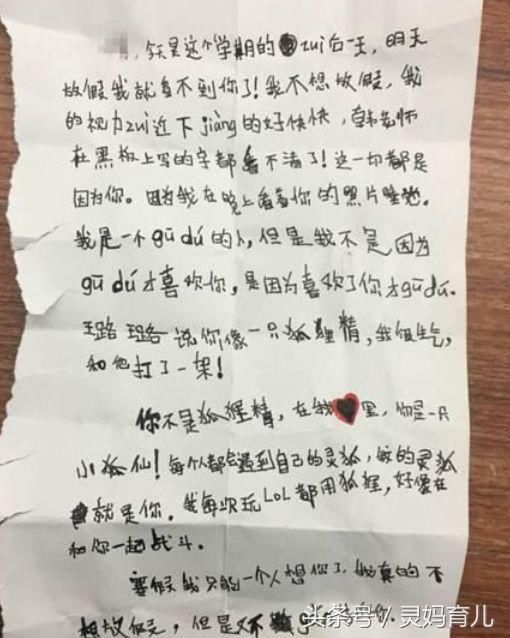 今天是这个学期的zui后一天，明天
放假我就看不到你了！我不想放假，我
的视力zui近下jiàng的好快快，韩老师
在黑板上写的字都看不清了！这一切都是
因为你。因为我在晚上看着你的照片睡地。
我是一个gū dú的人，但是我不是因为
gū dú才喜欢你，是因为喜欢了你才gū dú.
璐璐说你像一只狐狸精，我很生气，
和他打了一架！
你不是狐狸精，在我里，你是一只
小狐仙！每个人都会遇到自己的灵狐，我的灵狐
就是你。我每次玩LOL都用狐狸，好像在
和你一起战斗。
寒假我只能一个人想你了，我真的不
想放假，但是又不
头条号／灵妈育儿